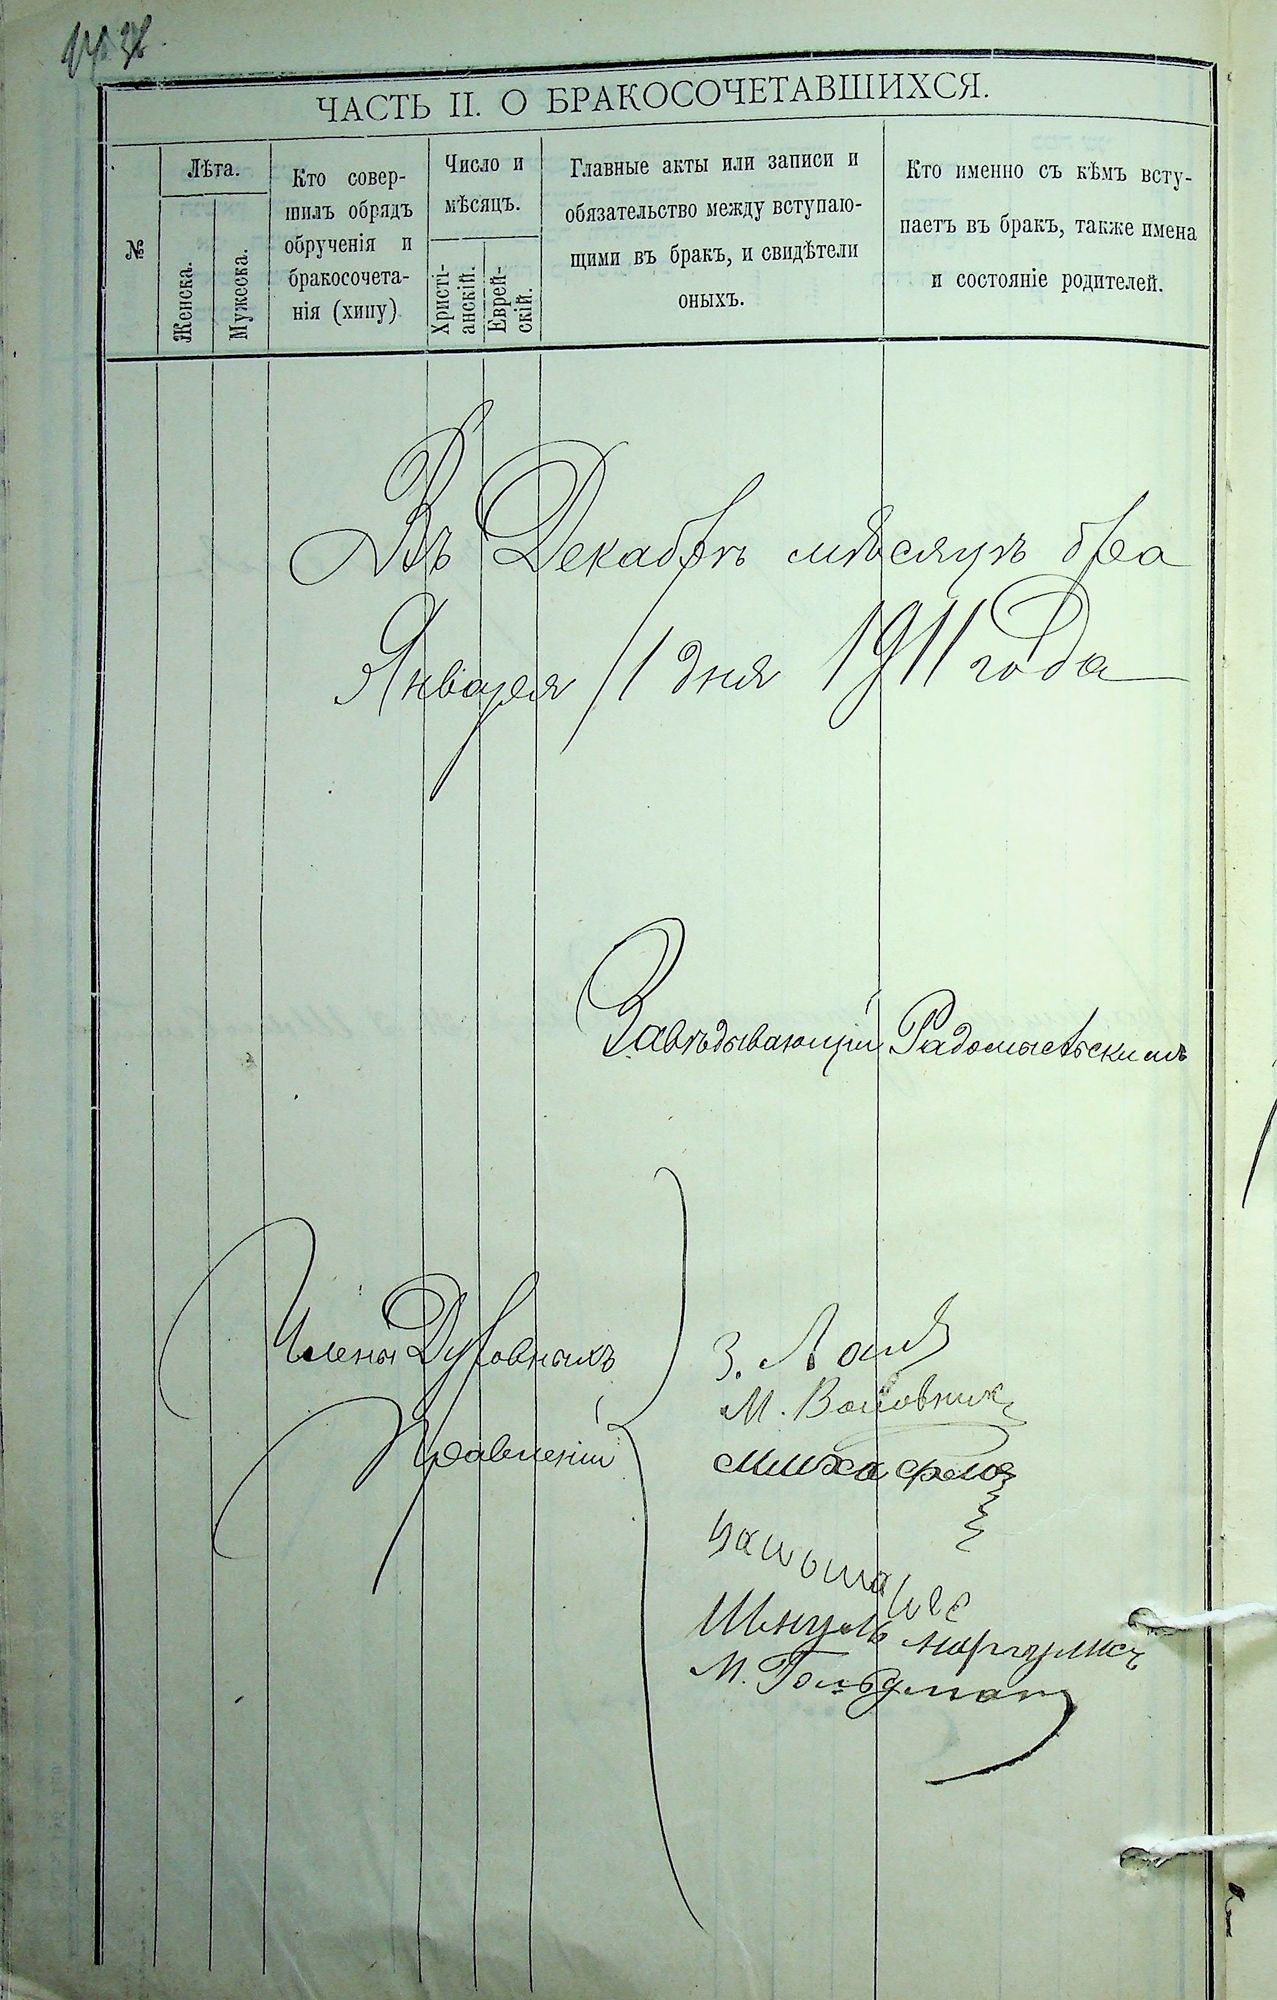 ЧАСТЬ II. О БРАКОСОЧЕТАВШИХСЯ.
№
Лѣта.
Женска.
Мужеска.
Кто совер-
шилъ обрядъ
обрученія и
бракосочета-
нія (хипу)
Число и
мѣсяцъ.
Христі-
анскій.
Еврей-
скій.
Главные акты или записи и
обязательство между вступаю-
щими въ бракъ, и свидѣтели
оныхъ.
Кто именно съ кѣмъ всту-
паетъ въ бракъ, также имена
и состояніе родителей.
Въ Декабрѣ мѣсяцѣ
Января 1 дня 1911 года
Завѣдывающій Радомысльскимъ
Члены Духовныхъ
Правленій
З.
М. Войовник
Шнуль Маргулисъ
М. Гольдман